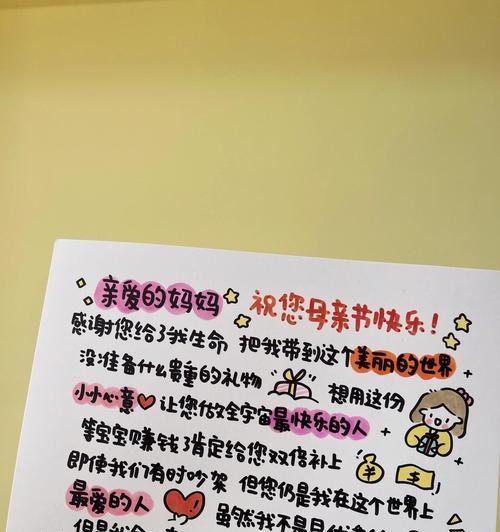 亲爱的妈妈 祝您母亲节快乐!
感谢您给了我生命 把我带到这个美丽的世界
没准备什么贵重的礼物 想用这份
小小心意 让您做全宇宙最快乐的人
等宝宝赚钱了肯定给您双倍补上
即使我们有时吵架 但您仍是我在这个世界上
最爱的人 虽然我不是
但是